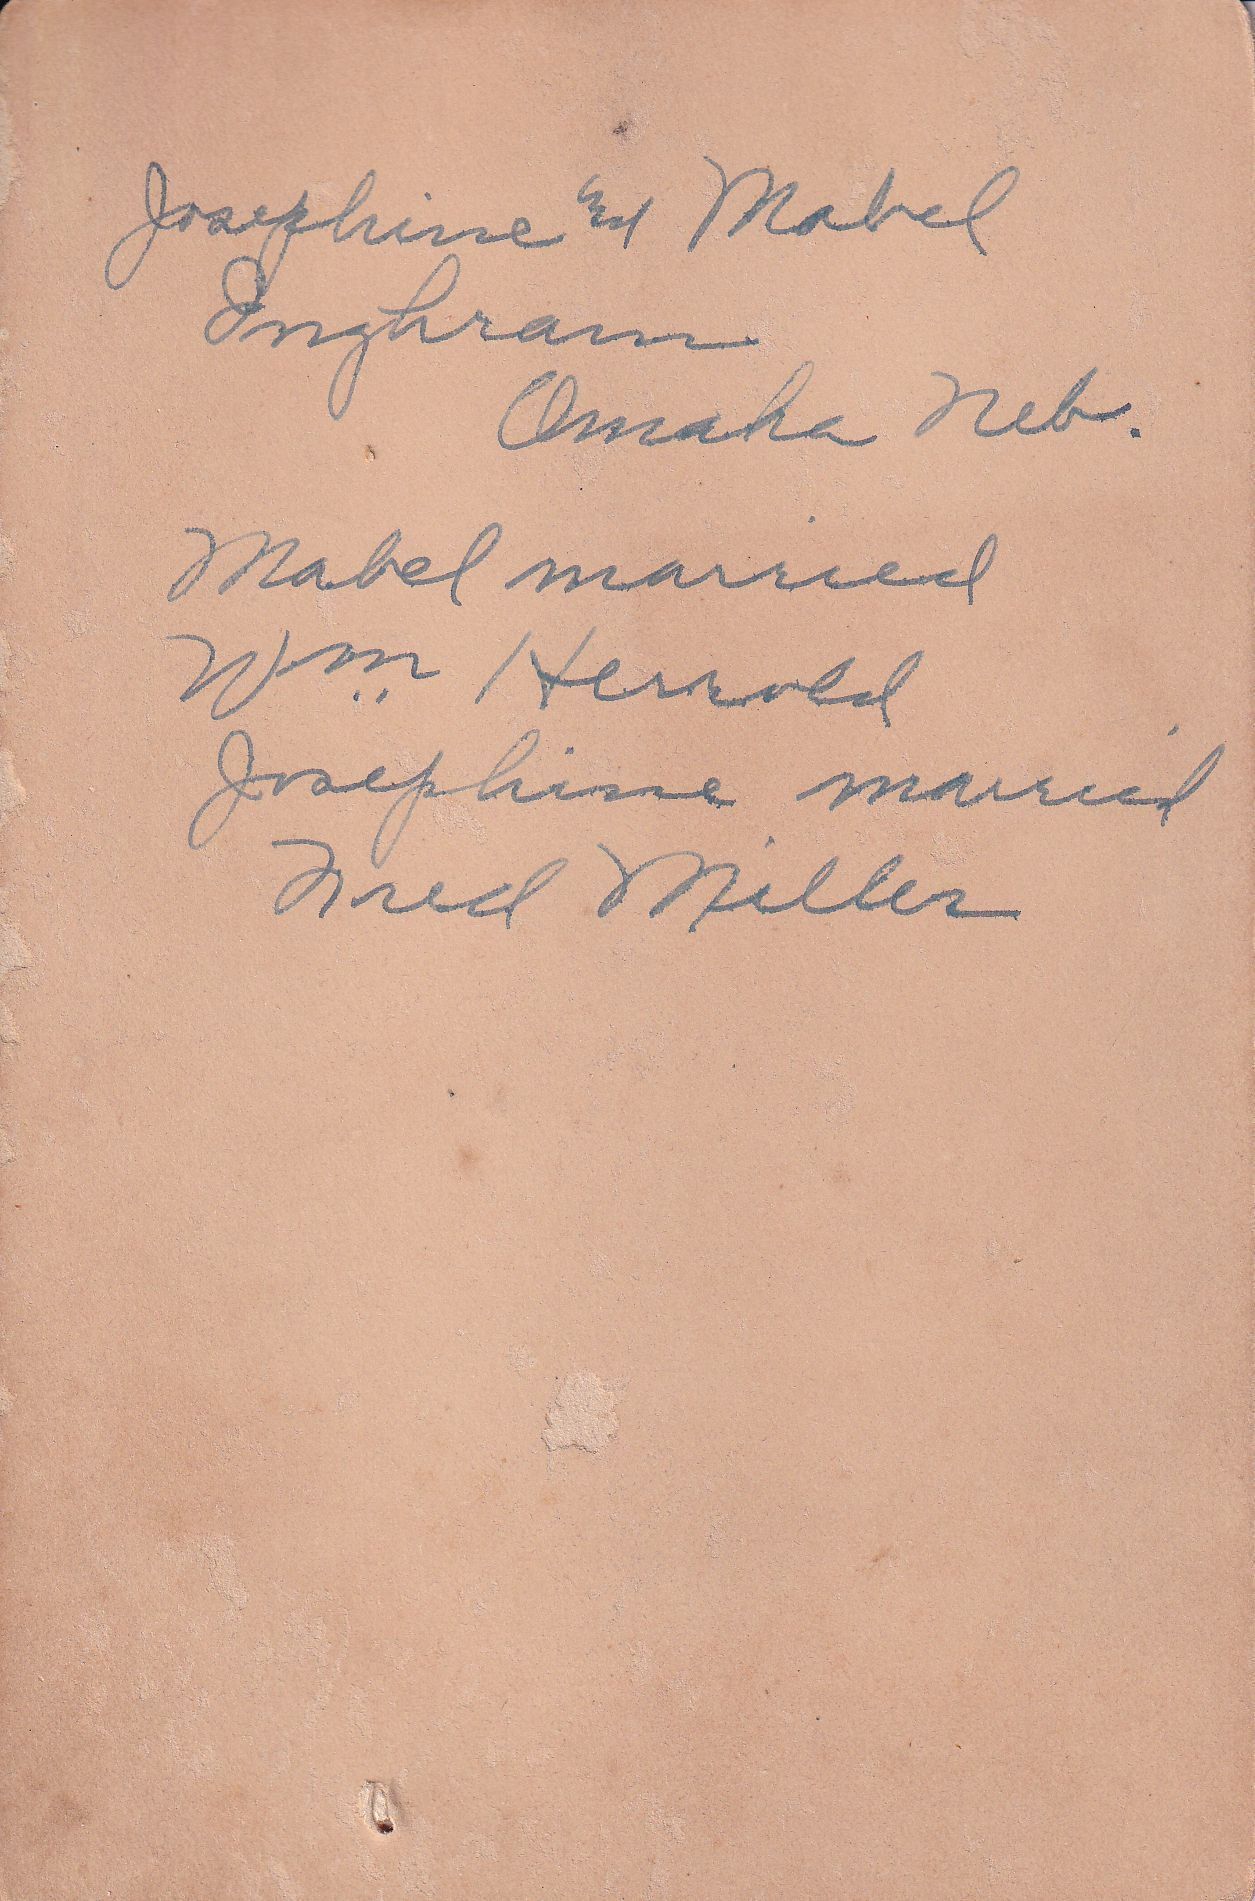 Josephine & Mabel
Inghram
Omaha Neb.
Mabel married
Wm Herrold
Josephine married
Fred Miller